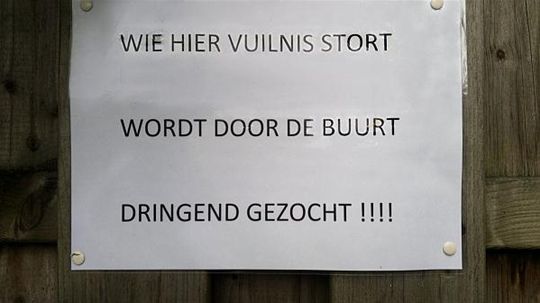 WIE HIER VUILNIS STORT
WORDT DOOR DE BUURT
DRINGEND GEZOCHT !!!!